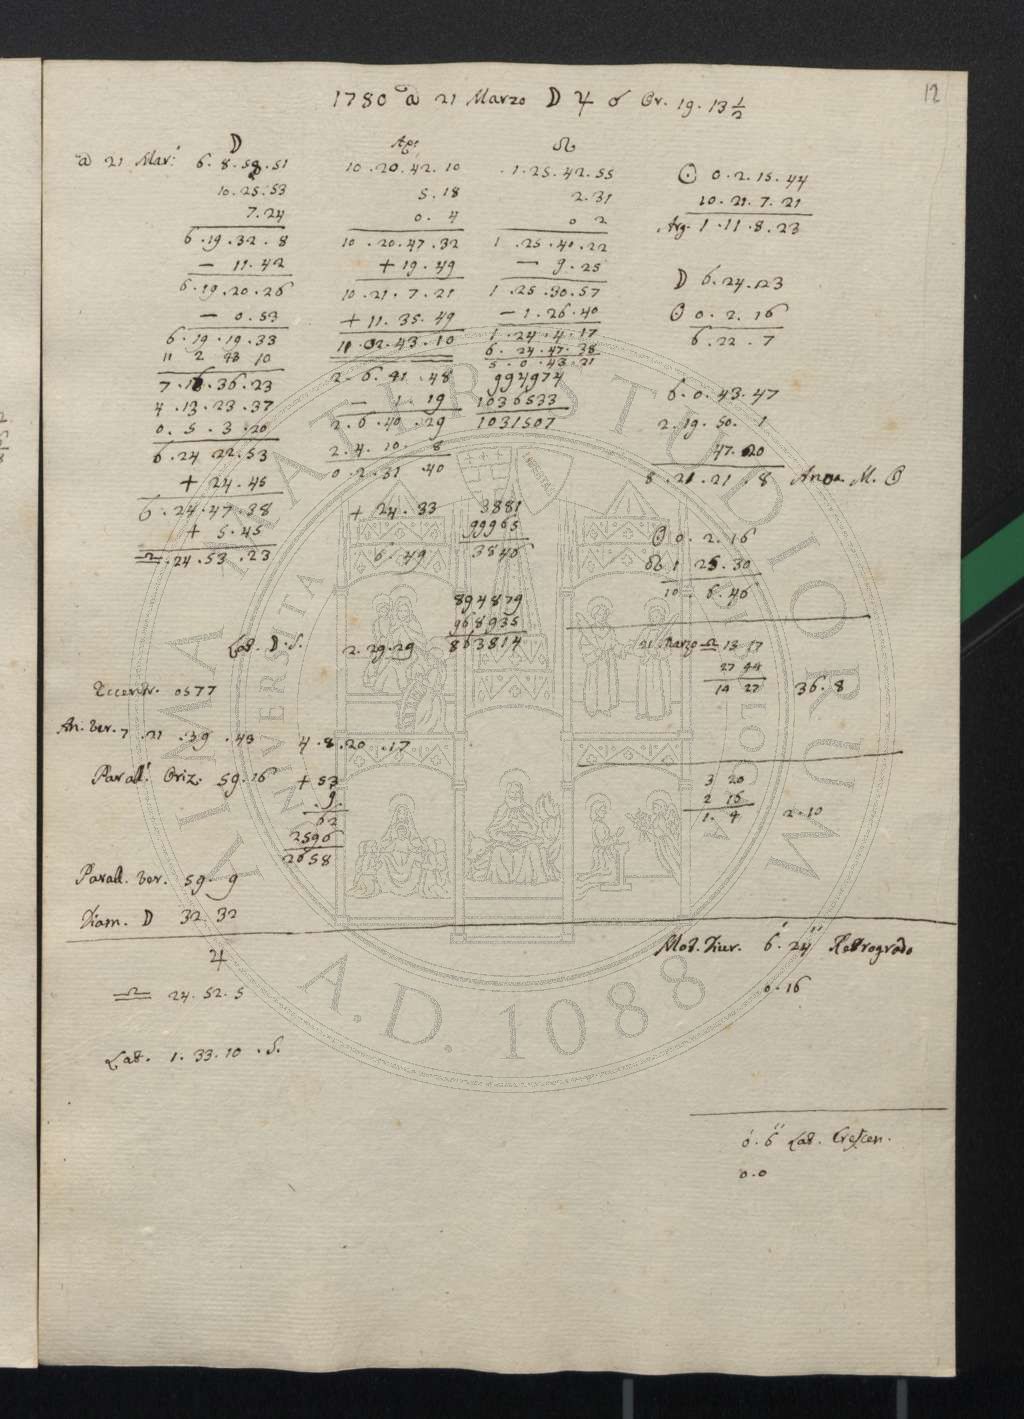 12
1780 a 21 Marzo ☽ ♃ ☌ Or. 19. 13 1/2
☽
a 21 Mar. 6. 8. 58. 51
10. 25. 53
7. 24
6. 19. 32. 8
— 11. 42
6. 19. 20. 26
— 0. 53
6. 19. 19. 33
11 2 43 10
7. 16. 36. 23
4. 13. 23. 37
0. 5. 3. 20
6. 24 22. 53
+ 24. 45
6. 24. 47. 38
+ 5. 45
♎. 24. 53. 23
Ap.
10. 20. 42. 10
5. 18
0. 4
10. 20. 47. 32
+ 19. 49
10. 21. 7. 21
+ 11. 35. 49
11. 02. 43. 10
2. 6. 41. 48
— 1. 19
2. 6. 40. 29
2. 4. 10. 8
0. 2. 31. 40
+ 24. 33
6. 49
☊
1. 25. 42. 55
2. 31
0 2
1. 25. 40. 22
— 9. 25
1. 25. 30. 57
— 1. 26. 40
1. 24. 4. 17
6. 24. 47. 38
5. 0. 43. 21
994974
1036533
1031507
3881
99965
3846
894879
968935
863814
☉ 0. 2. 15. 44
10. 21. 7. 21
Arg. 1. 11. 8. 23
☽ 6. 24. 23
☉ 0. 2. 16
6. 22. 7
6. 0. 43. 47
2. 19. 50. 1
47. 20
8. 21. 21. 8 Anoa. M. ☉
☉ 0. 2. 16
☊ 1 25. 30
10. 6. 46
21 Marzo ♎ 13 17
27 44
14 27 36. 8
3 20
2 16
1. 4 2. 10
Lat. ☽. S. 2. 29. 29
Eccentr. 0577
An. ver. 7. 21. 39. 43
4. 8. 20. 17
Parall. Oriz. 59. 16
+ 53
. 9.
62
2596
2658
Parall. ver. 59. 9
Diam. ☽ 32. 32
♃
♎ 24. 52. 5
Lat. 1. 33. 10. S.
Mot. Diur. 6'. 24'' Retrogrado
0. 16
0'. 6'' Lat. Crescen.
0. 0
ALMA MATER STUDIORUM
UNIVERSITÀ DI BOLOGNA
A.D. 1088